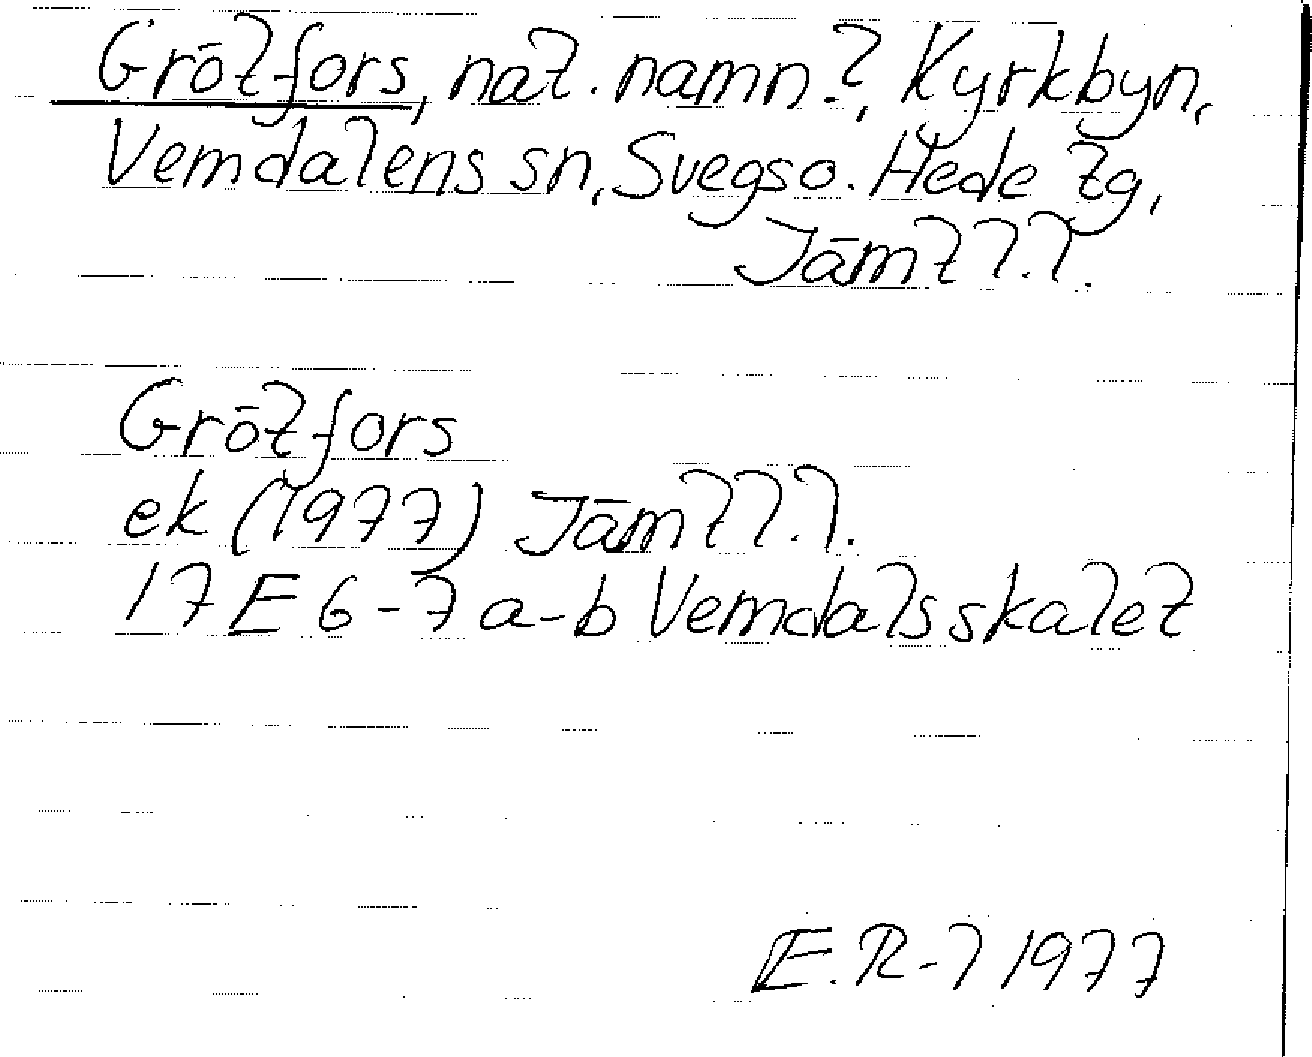 Grötfors, nat. namn.?, Kyrkbyn,
Vemdalens sn, Svegs o. Hede tg,
Jämtl.l.
Grötfors
ek (1977) Jämtl.l.
17 E 6-7 a-b Vemdalsskalet
E.R-l 1977